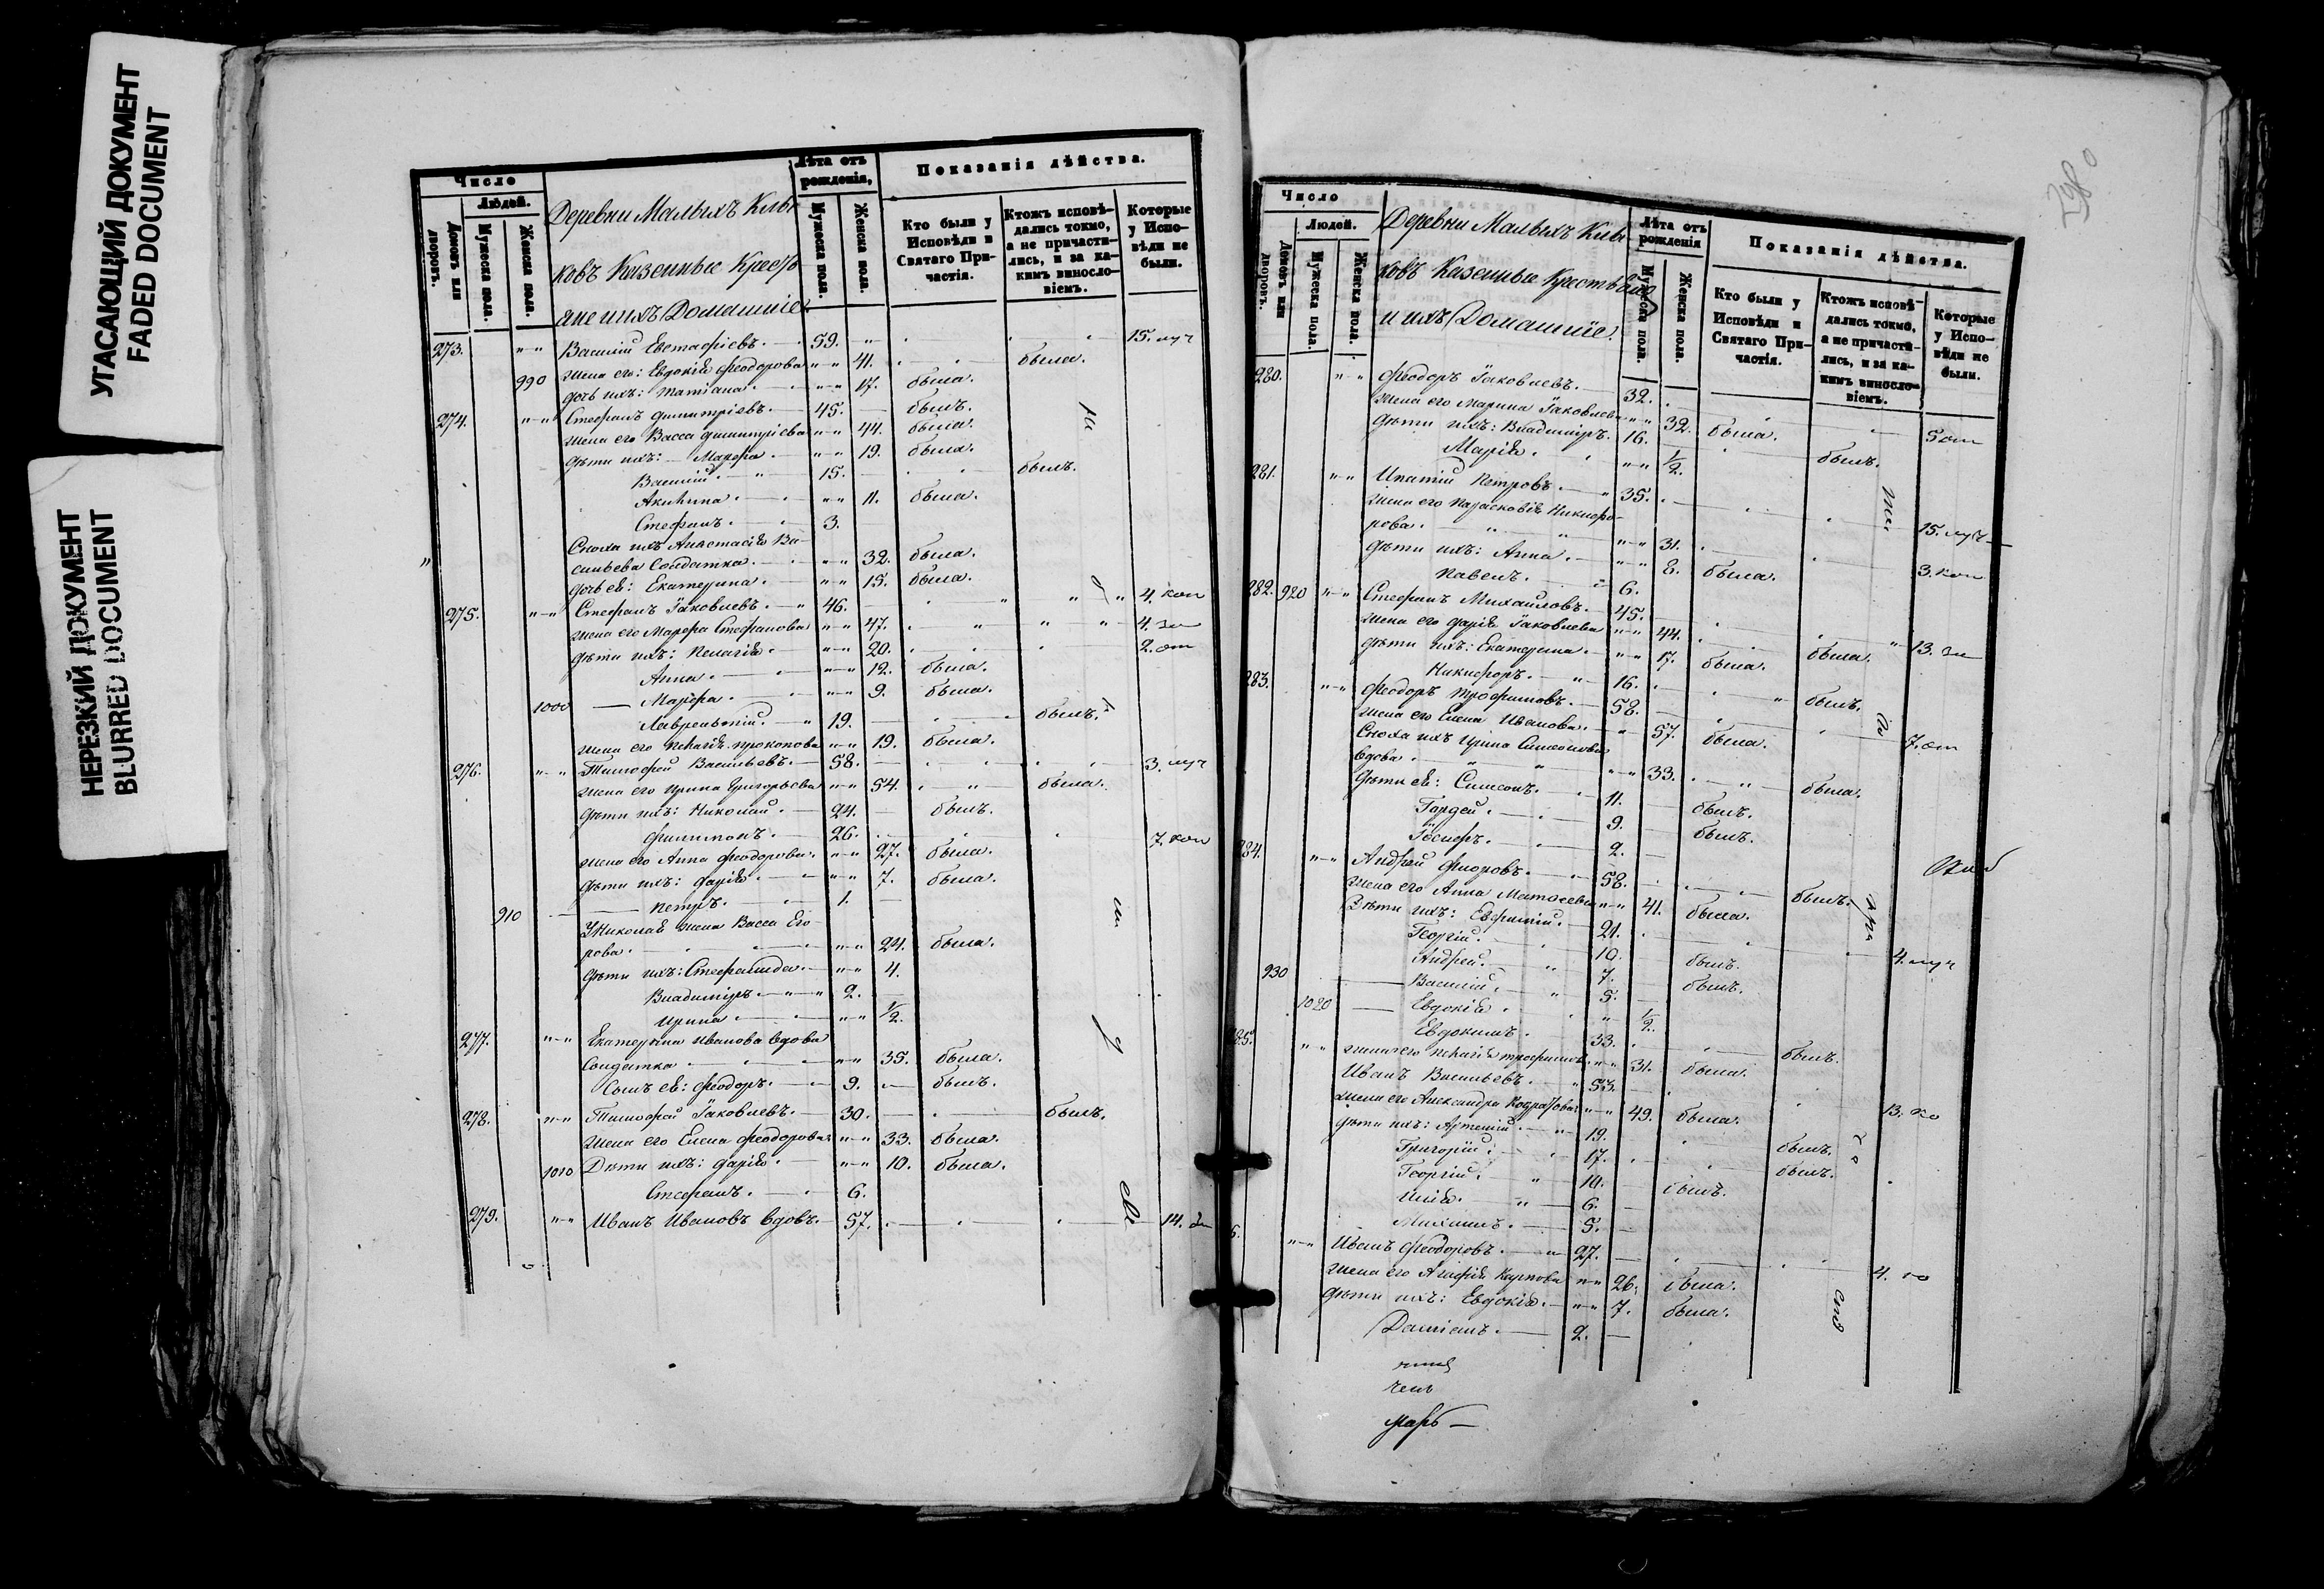 УГАСАЮЩИЙ ДОКУМЕНТ
FADED DOCUMENT
НЕРЕЗКИЙ ДОКУМЕНТ
BLURRED DOCUMENT
Число
Людей.
Домовъ или дворовъ.
Мужеска пола.
Женска пола.
Деревни Малыхъ
ковъ Казенные Кресть
яне ихъ Домашніе.
Лѣта отъ рожденія,
Мужеска пола.
Женска пола.
Показанія дѣйства.
Кто были у Исповѣди и Святаго Причастія.
Ктожъ исповѣдались токмо, а не причастились, и за какимъ винословіемъ.
Которые у Исповѣди не были.
273. „—„ Василій Евстафіевъ. 59. 15.
жена его: Евдокія Феодорова „ „ 41. была.
990 дочь ихъ: Татіана. „ „ 17. была.
274. „—„ Стефанъ Димитріевъ. 45. былъ.
жена его Васса Димитріева „ „ 44. была.
дѣти ихъ: Марфа. „ „ 19. была.
Василій. 15. былъ.
Акилина. „ „ 11. была.
Стефанъ. 3.
Сноха ихъ Анастасія Ва-
сильева Солдатка. „ „ 32. была.
дочь ея: Екатерина. „ „ 15. была.
275. „—„ Стефанъ Іаковлевъ. 46. 4.
жена его Марфа Стефанова „ „ 47. 4.
дѣти ихъ: Пелагія. „ „ 20. 2. от
Анна. „ „ 12. была.
1000 — Марфа. „ „ 9. была.
Лаврентій. 19. былъ.
жена его Пелагія Прокопова „ „ 19. была.
276. „—„ Тимофей Васильевъ. 58. 3.
жена его Ирина Григорьева „ „ 54. была.
дѣти ихъ: Николай. 24. былъ.
Филимонъ. 26. 7.
жена его Анна Феодорова. „ „ 27. была.
дѣти ихъ: Дарія. „ „ 7. была.
910 — Петръ. 1.
У Николая жена Васса Его-
рова. „ „ 24. была.
дѣти ихъ: Стефанида. „ „ 4.
Владиміръ. 2.
Ирина. „ „ 1/2.
277. „—„ Екатерина Иванова вдова
Солдатка. „ „ 35. была.
Сынъ ея: Феодоръ. 9. былъ.
278. „—„ Тимофей Іаковлевъ. 30. былъ.
жена его Елена Феодорова „ „ 33. была.
1010 Дѣти ихъ: Дарія. „ „ 10. была.
Стефанъ. 6.
279. „—„ Иванъ Ивановъ вдовъ. 57. 14.
Число
Людей.
Домовъ или дворовъ.
Мужеска пола.
Женска пола.
Деревни Малыхъ
ковъ Казенные Крестьяне
и ихъ Домашніе.
Лѣта отъ рожденія
Мужеска пола.
Женска пола.
Показанія дѣйства.
Кто были у Исповѣди и Святаго Причастія.
Ктожъ исповѣдались токмо, а не причастились, и за какимъ винословіемъ.
Которые у Исповѣди не были.
280. „—„ Феодоръ Іаковлевъ. 32. 5 от
жена его Марина Іаковлева „ „ 32. была.
дѣти ихъ: Владиміръ. 16. былъ.
Марія. „ „ 1/2.
281. „—„ Ипатій Петровъ. 35. 15.
жена его Параскевія Никифо-
рова. „ „ 31. 3.
дѣти ихъ: Анна. „ „ 8. была.
Павелъ. 6.
282. 920 „—„ Стефанъ Михайловъ. 45. 13.
жена его Дарія Іаковлева „ „ 44. была.
дѣти ихъ: Екатерина. „ „ 17. была.
Никифоръ. 16. былъ.
283. „—„ Феодоръ Трофимовъ. 58. 7. от
жена его Елена Иванова. „ 57. была.
Сноха ихъ Ирина Симеонова
вдова. „ „ 33. была.
дѣти ея: Симеонъ. 11. былъ.
Гордей. 9. былъ.
Іосифъ. 2.
284. „—„ Андрей Флоровъ. 58. былъ.
жена его Анна Матвеева „ „ 41. была.
Дѣти ихъ: Евфимій. 21. 4.
Георгій. 10. былъ.
Андрей. 7. былъ.
930 — Василій. 5.
1020 — Евдокія. „ 1/2.
Евдокимъ. 33. былъ.
жена его Пелагія Трофимов. „ „ 31. была.
285. „—„ Иванъ Васильевъ. 53. 13.
жена его Александра „ „ 49. была.
дѣти ихъ: Артемій. 19. былъ.
Григорій. 17. былъ.
Георгій. 10. былъ.
Илія. 6.
Михаилъ. 5.
6. „—„ Иванъ Феодоровъ. 27. 4.
жена его Агафія Карпова „ „ 26. была.
дѣти ихъ: Евдокія. „ „ 7. была.
Даміанъ. 2.